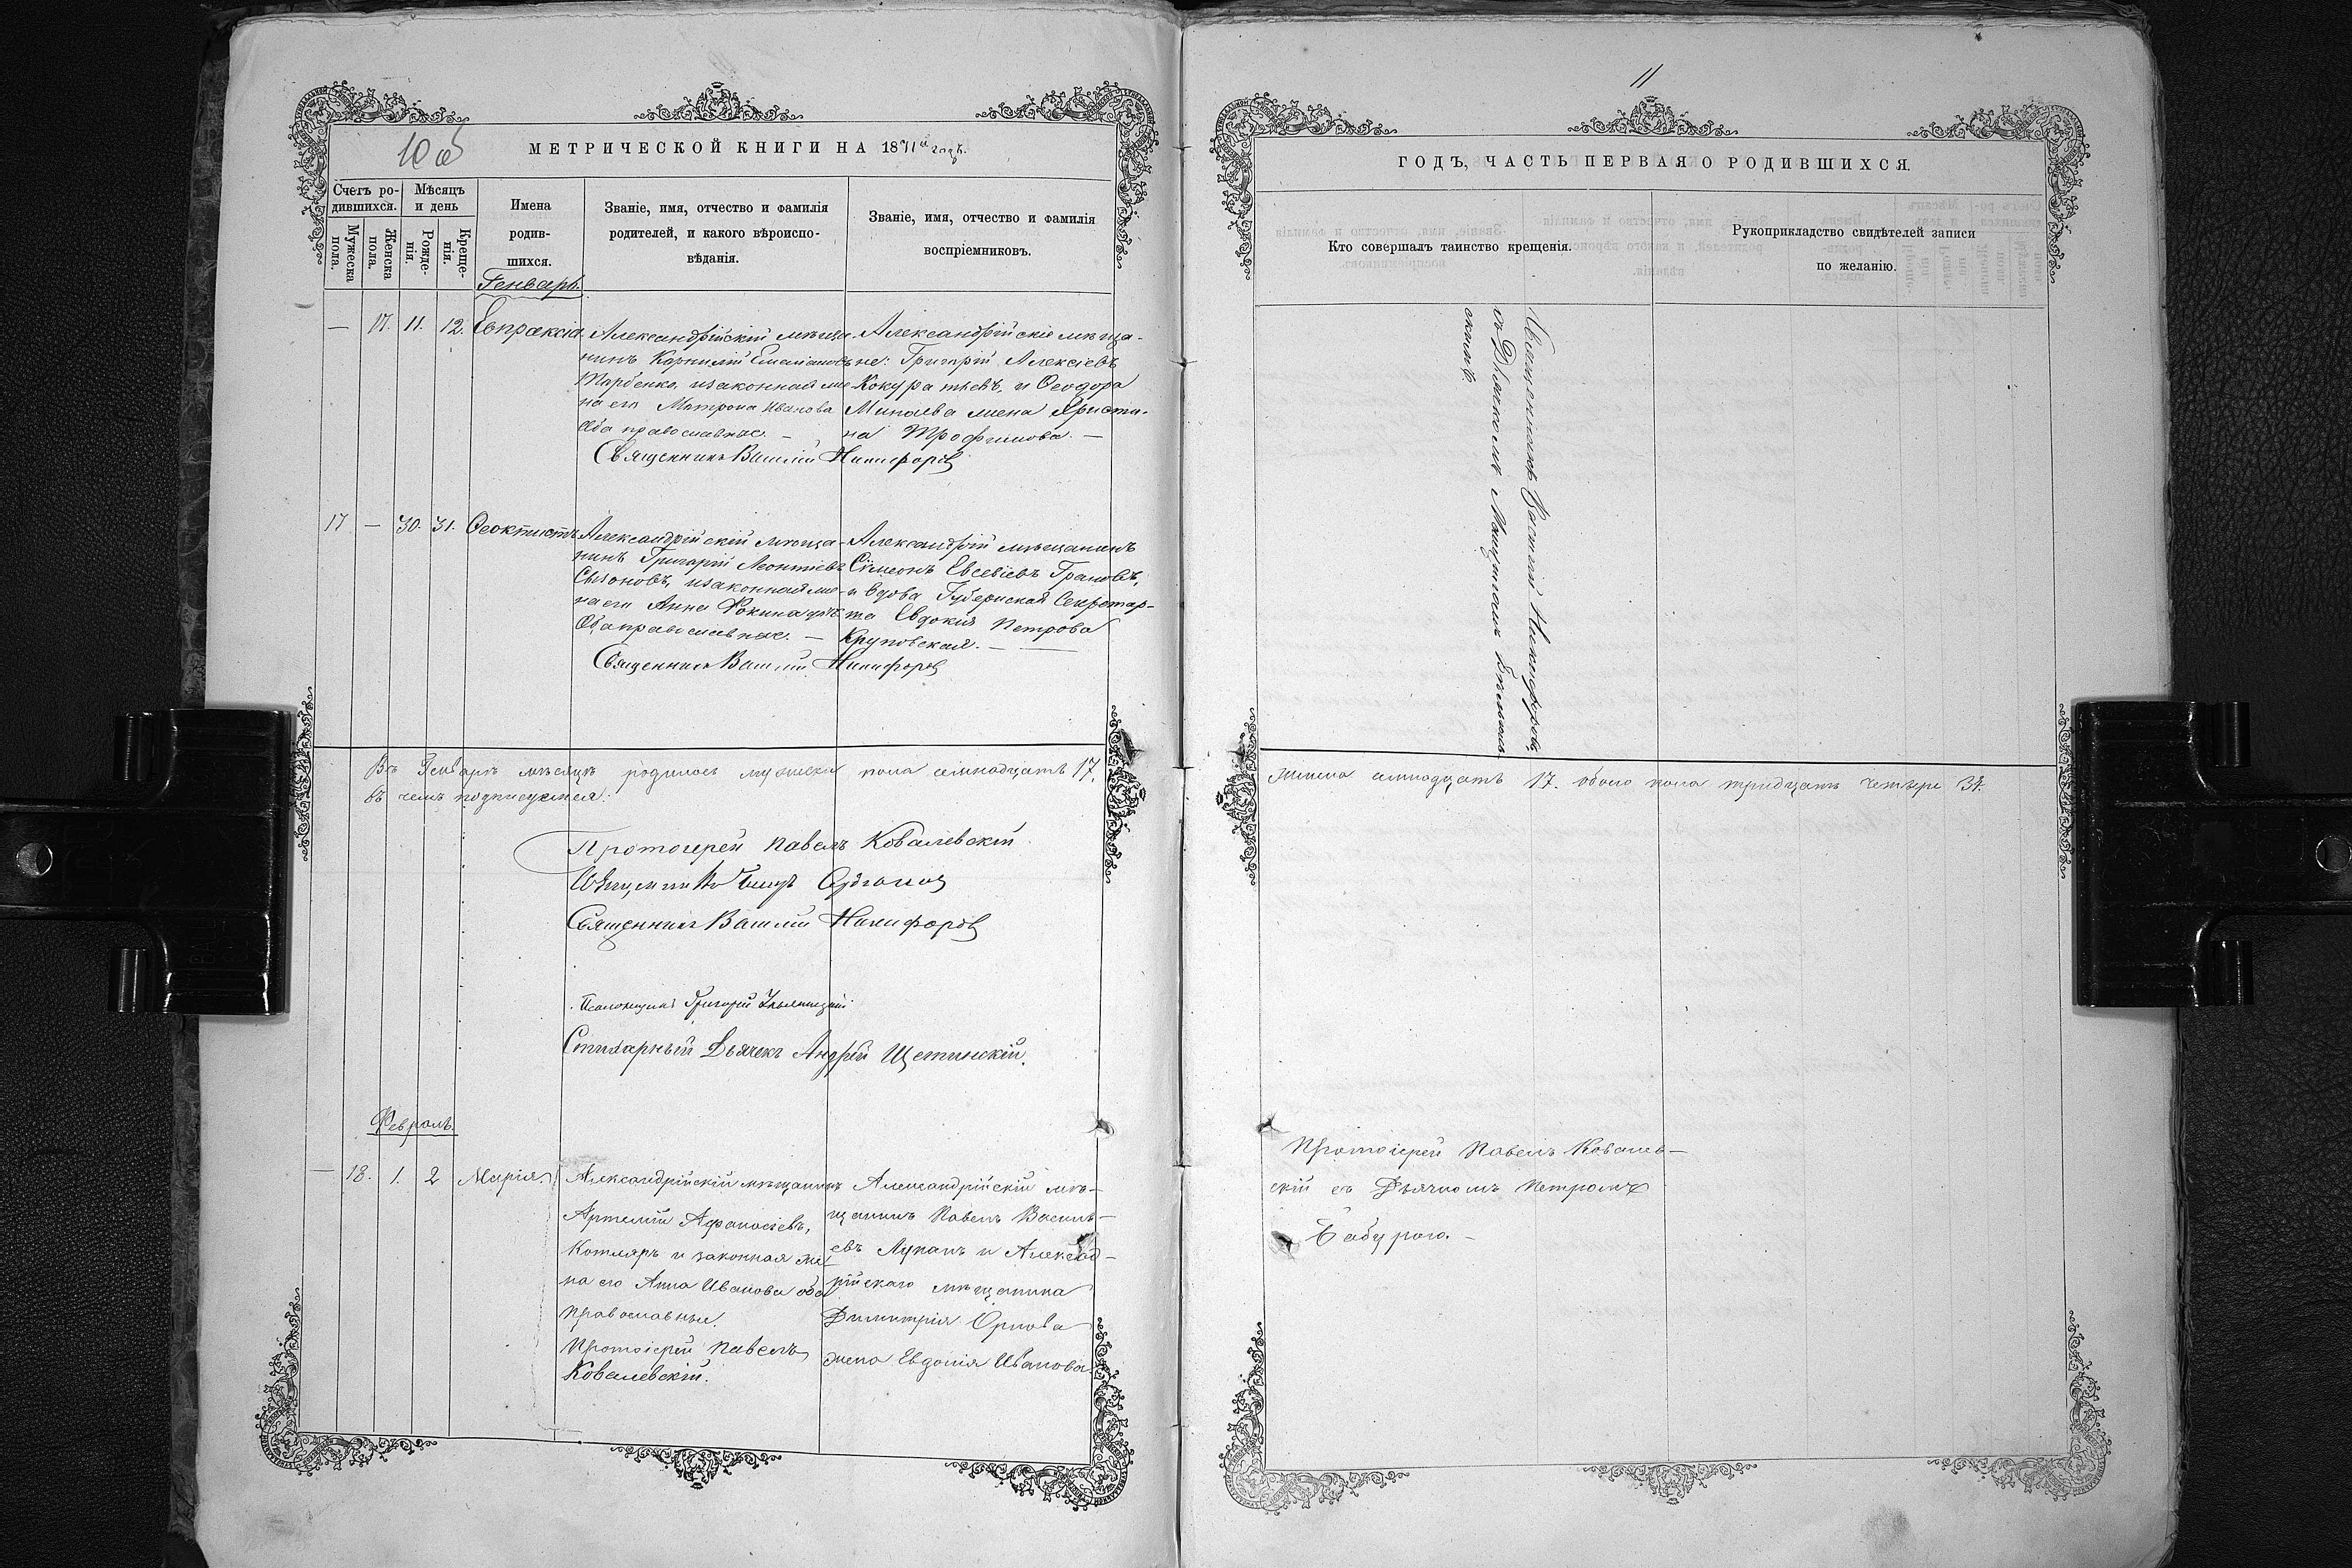 10 об
МЕТРИЧЕСКОЙ КНИГИ НА 1871й годъ.
Счетъ ро-
дившихся.
Мужеска
пола.
Женска
пола.
Мѣсяцъ
и день
Рожде-
нія.
Креще-
нія.
Имена
родив-
шихся.
Званіе, имя, отчество и фамилія
родителей, и какого вѣроиспо-
вѣданія.
Званіе, имя, отчество и фамилія
воспріемниковъ.
Генварь.
— 17. 11. 12. Евпраксія
Александрійскій мѣща-
нинъ Корнилій Емеліановъ
и законная же-
на его Матрона Иванова
Оба православные. —
Священникъ Василій Никифоровъ
Александрійскіе мѣща-
не: Григорій Алексіевъ
и Ѳеодора
Минаева жена Христи-
на Трофимова. —
17 — 30. 31. Ѳеоктистъ
Александрійскій мѣща-
нинъ Григорій Леонтіевъ
и законная же-
на его Анна
Оба православные. —
Священникъ Василій Никифоровъ
Александрій мѣщанинъ
Сімеонъ Евсевіевъ Грановъ,
и вдова Губернскай Секретар-
ша Евдокія Петрова
Круповская. —
Въ Генварѣ мѣсяцѣ родилось мужеска пола семнадцать 17.
въ чемъ подписуемся:
Протоіерей Павелъ Ковалевскій
Священникъ
Священникъ Василій Никифоровъ
Псаломщикъ Григорій
Стихарный Дьячекъ Андрей Щетинскій.
Февраль.
— 18. 1. 2 Марія.
Александрійскій мѣщанинъ
Артемій Афанасіевъ,
Котляръ и законная же-
на его Анна Иванова оба
православные.
Протоіерей Павелъ
Ковалевскій.
Александрійскій мѣ-
щанинъ Павелъ Василь-
евъ Лупанъ и Александ-
рійскаго мѣщанина
Димитрія Орлова
жена Евдокія Иванова
11
ГОДЪ, ЧАСТЬ ПЕРВАЯ О РОДИВШИХСЯ.
Кто совершалъ таинство крещенія.
Рукоприкладство свидѣтелей записи
по желанію.
Священникъ Василій Никифоровъ,
съ Дьякомъ
скимъ
женска семнадцать 17. обоего пола тридцать четыре 34.
Протоіерей Павелъ Ковалев-
скій съ Дьячкомъ Петромъ
Бабурою. —